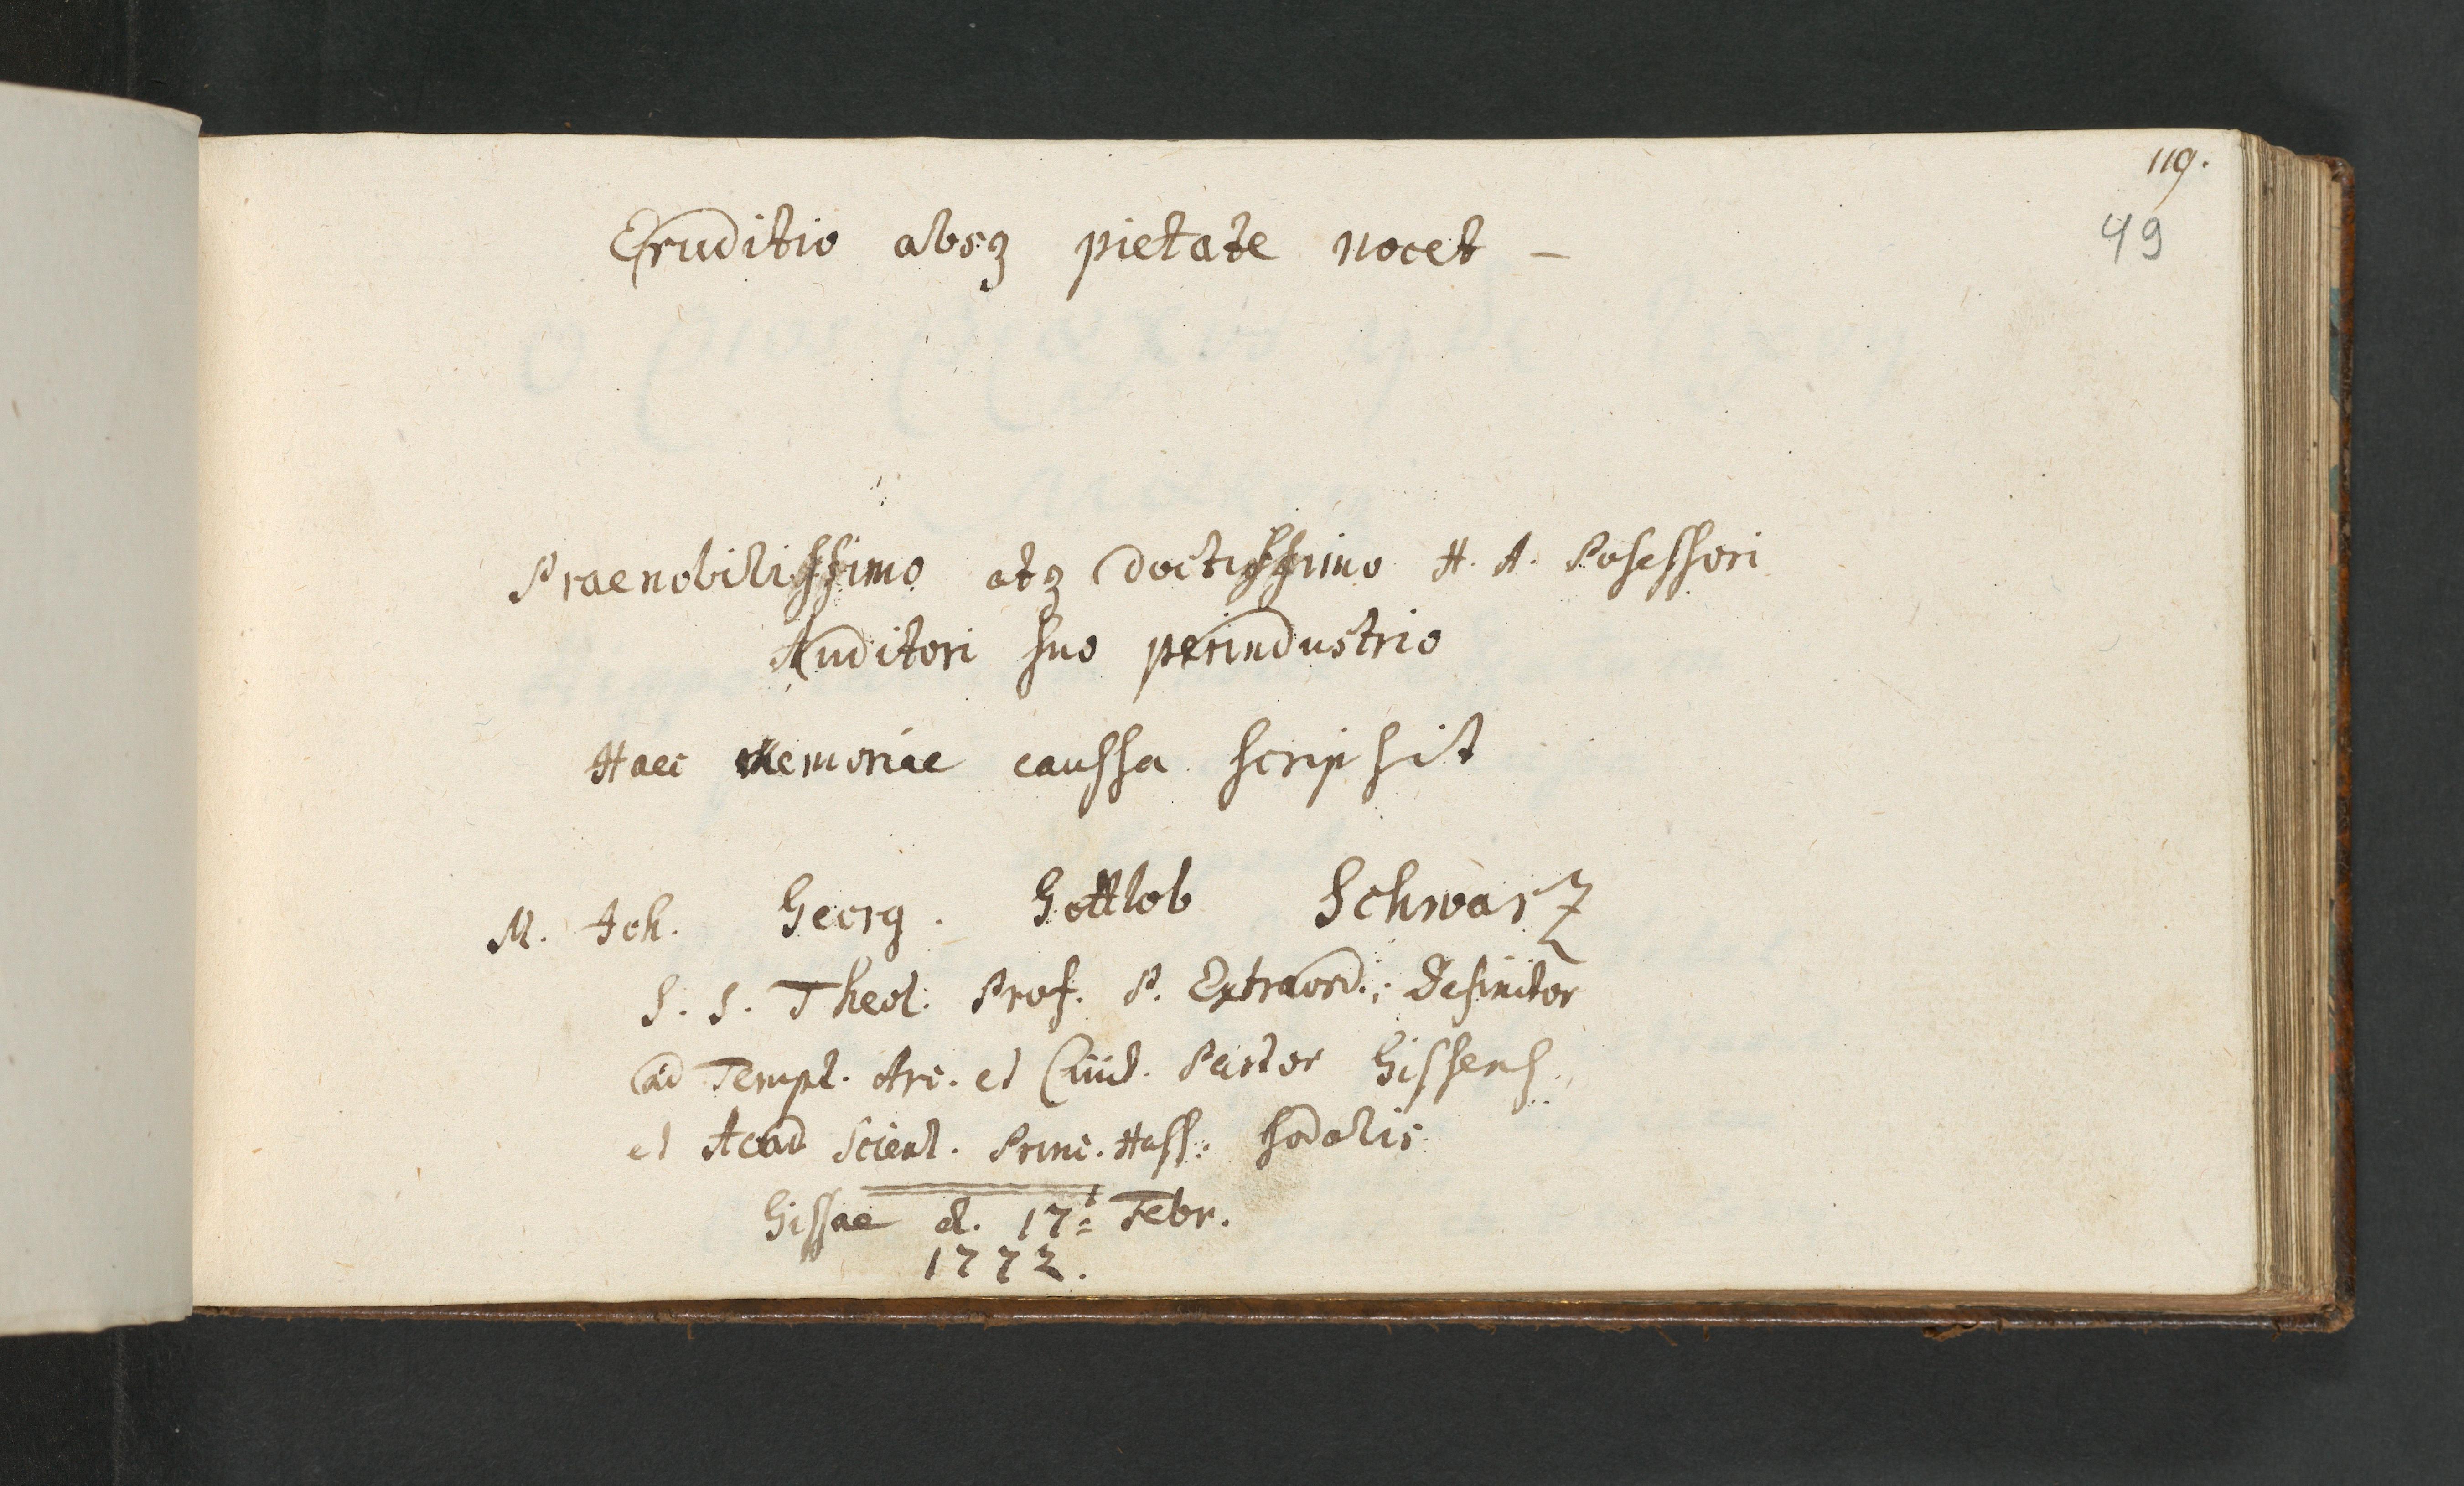 119.
49
Eruditio absq pietate nocet –
Praenobilissimo atq doctissimo H. A. Possessori
Auditori suo perindustrio
Haec memoriae caussa scripsit
M. Joh. Georg. Gottlob Schwarz
S. S. Theol. Prof. P. Extraord.; Definitor
ad Templ. Arc. et Pastor Gissens.
et Acad Scient. Princ. Hass. sodalis.
Gissae d. 17t Febr.
1772.